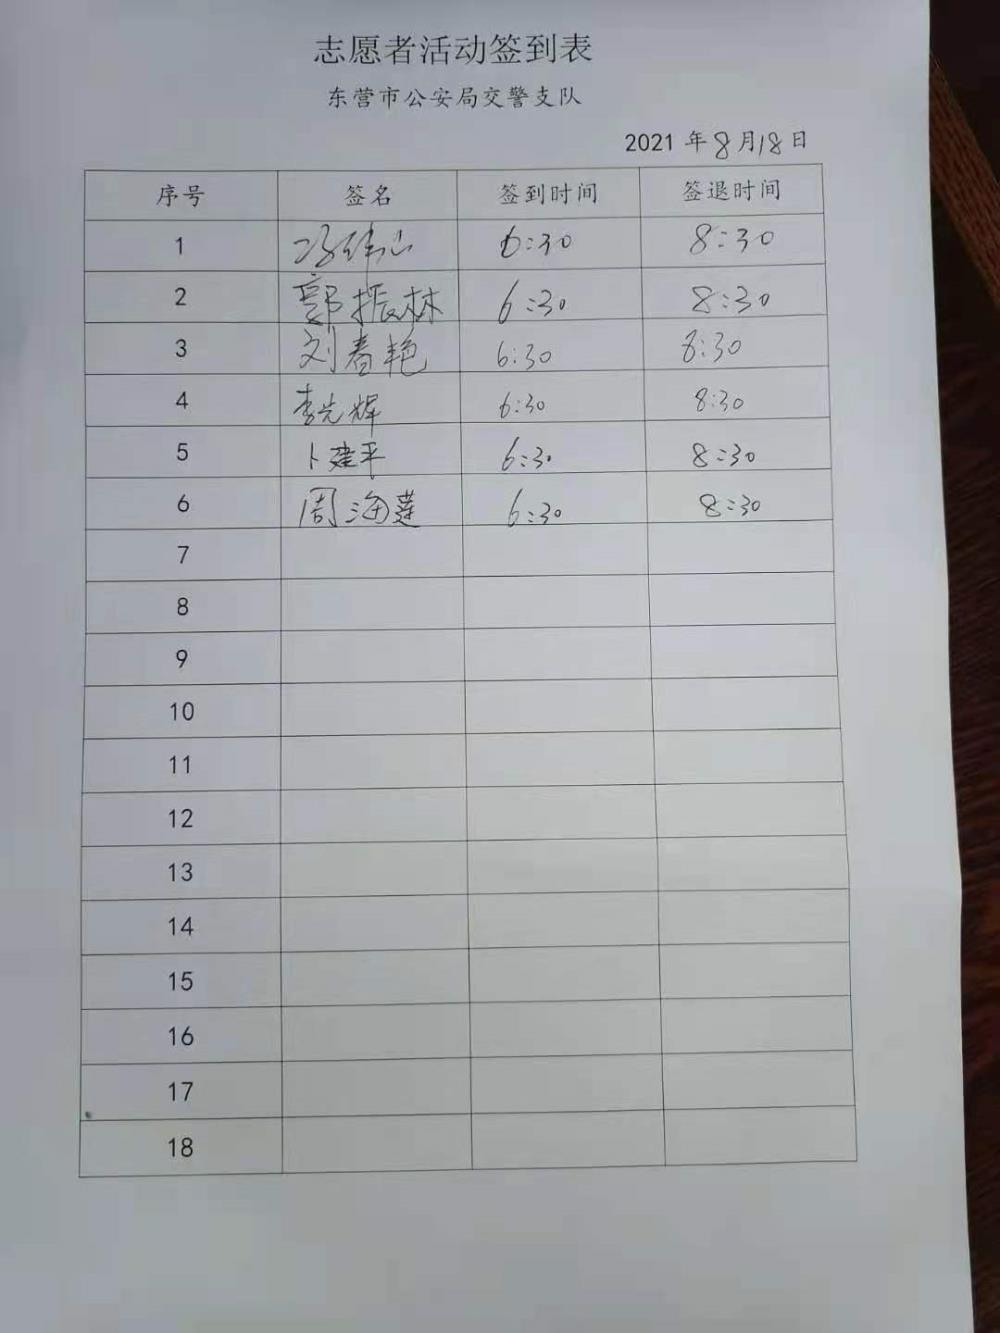 志愿者活动签到表
东营市公安局交警支队
2021 年 8 月 18 日
序号 签名 签到时间 签退时间
1 6:30 8:30
2 郭振林 6:30 8:30
3 刘春艳 6:30 8:30
4 李先辉 6:30 8:30
5 卜建平 6:30 8:30
6 周海莲 6:30 8:30
7
8
9
10
11
12
13
14
15
16
17
18